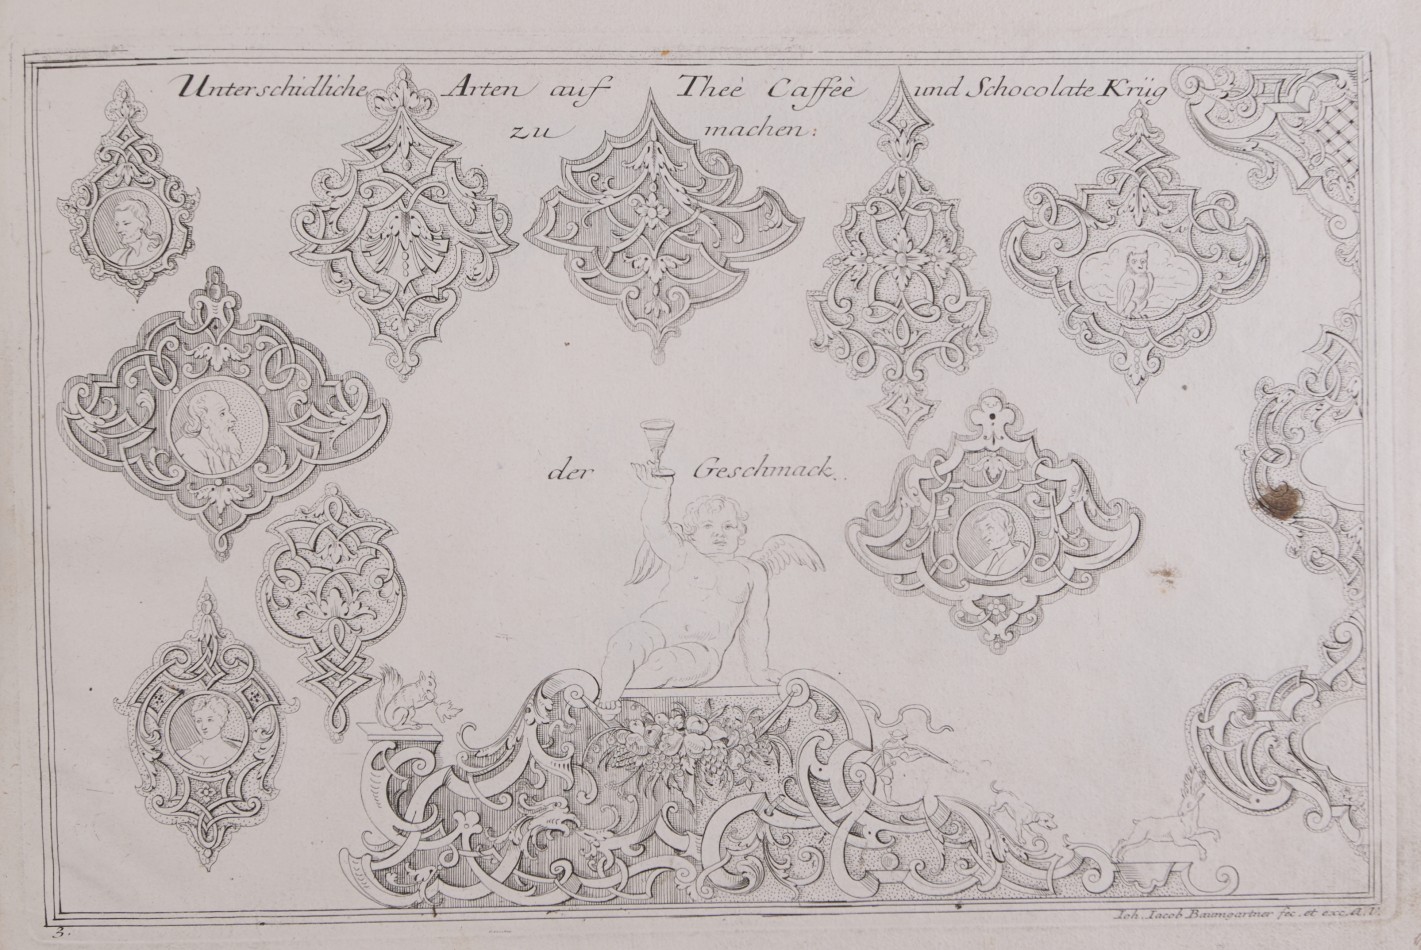 Unterschidliche Arten auf Theè Caffeè und Schocolate Krüg
zu machen:
der Geschmack.
Joh. Jacob Baumgartner fec. et exc. A. V.
3.